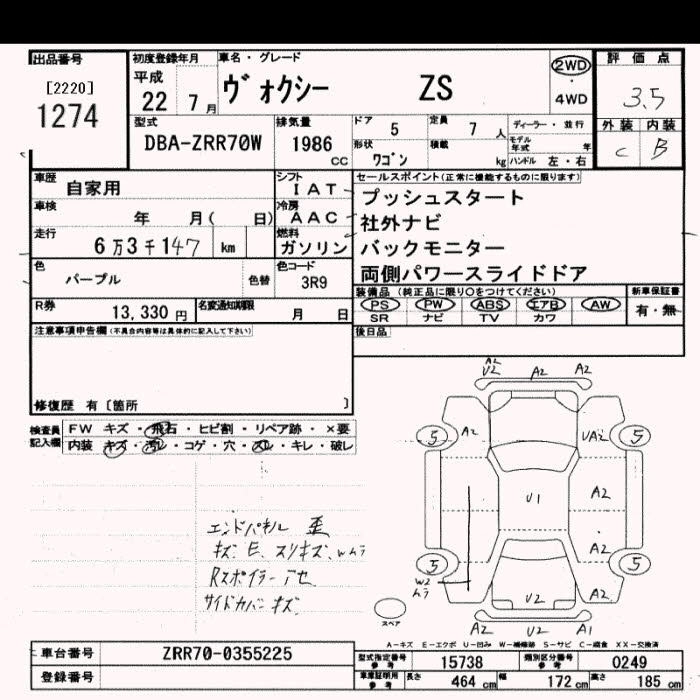 出品番号 初度登録年月 車名・グレード 評価点
[2220] 平成
1274 22 7月 ヴォクシー ZS 2WD・4WD 3.5
型式 排気量 ドア 5 定員 7人 ディーラー・並行 外装 内装
DBA-ZRR70W 1986cc 形状 ワゴン 積載 kg モデル年式 年 ハンドル 左・右 C B
車歴 自家用 シフト IAT セールスポイント(正常に機能するものに限ります)
車検 年 月( 日) 冷房 AAC プッシュスタート
走行 6万3千147 km 燃料 ガソリン 社外ナビ
色 パープル 色替 色コード 3R9 バックモニター
両側パワースライドドア
R券 13,330円 名変通知期限 月 日 装備品(純正品に限り○をつけてください) 新車保証書
PS PW ABS エアB AW 有・無
SR ナビ TV カワ
注意事項申告欄(不具合内容等は具体的に記入して下さい) 後日品
修復歴 有〔箇所 〕
検査員記入欄 FW キズ・飛石・ヒビ割・リペア跡・×要
内装 キズ・汚レ・コゲ・穴・スレ・キレ・破レ
A2
U2 A2 A2
5 A2 UA2 5
U1 A2
A2
5 W2 ムラ 5
U2 A2 U2 A1 A1
エンドパネル 歪
キズ、E、スリキズ、Wムラ
Rスポイラー アセ
サイドカバー キズ
スペア
A-キズ E-エクボ U-凹み W-補修跡 S-サビ C-腐食 XX-交換済
車台番号 ZRR70-0355225 型式指定番号 参考 15738 類別区分番号 参考 0249
登録番号 車庫証明用 参考 長さ 464cm 幅 172cm 高さ 185cm